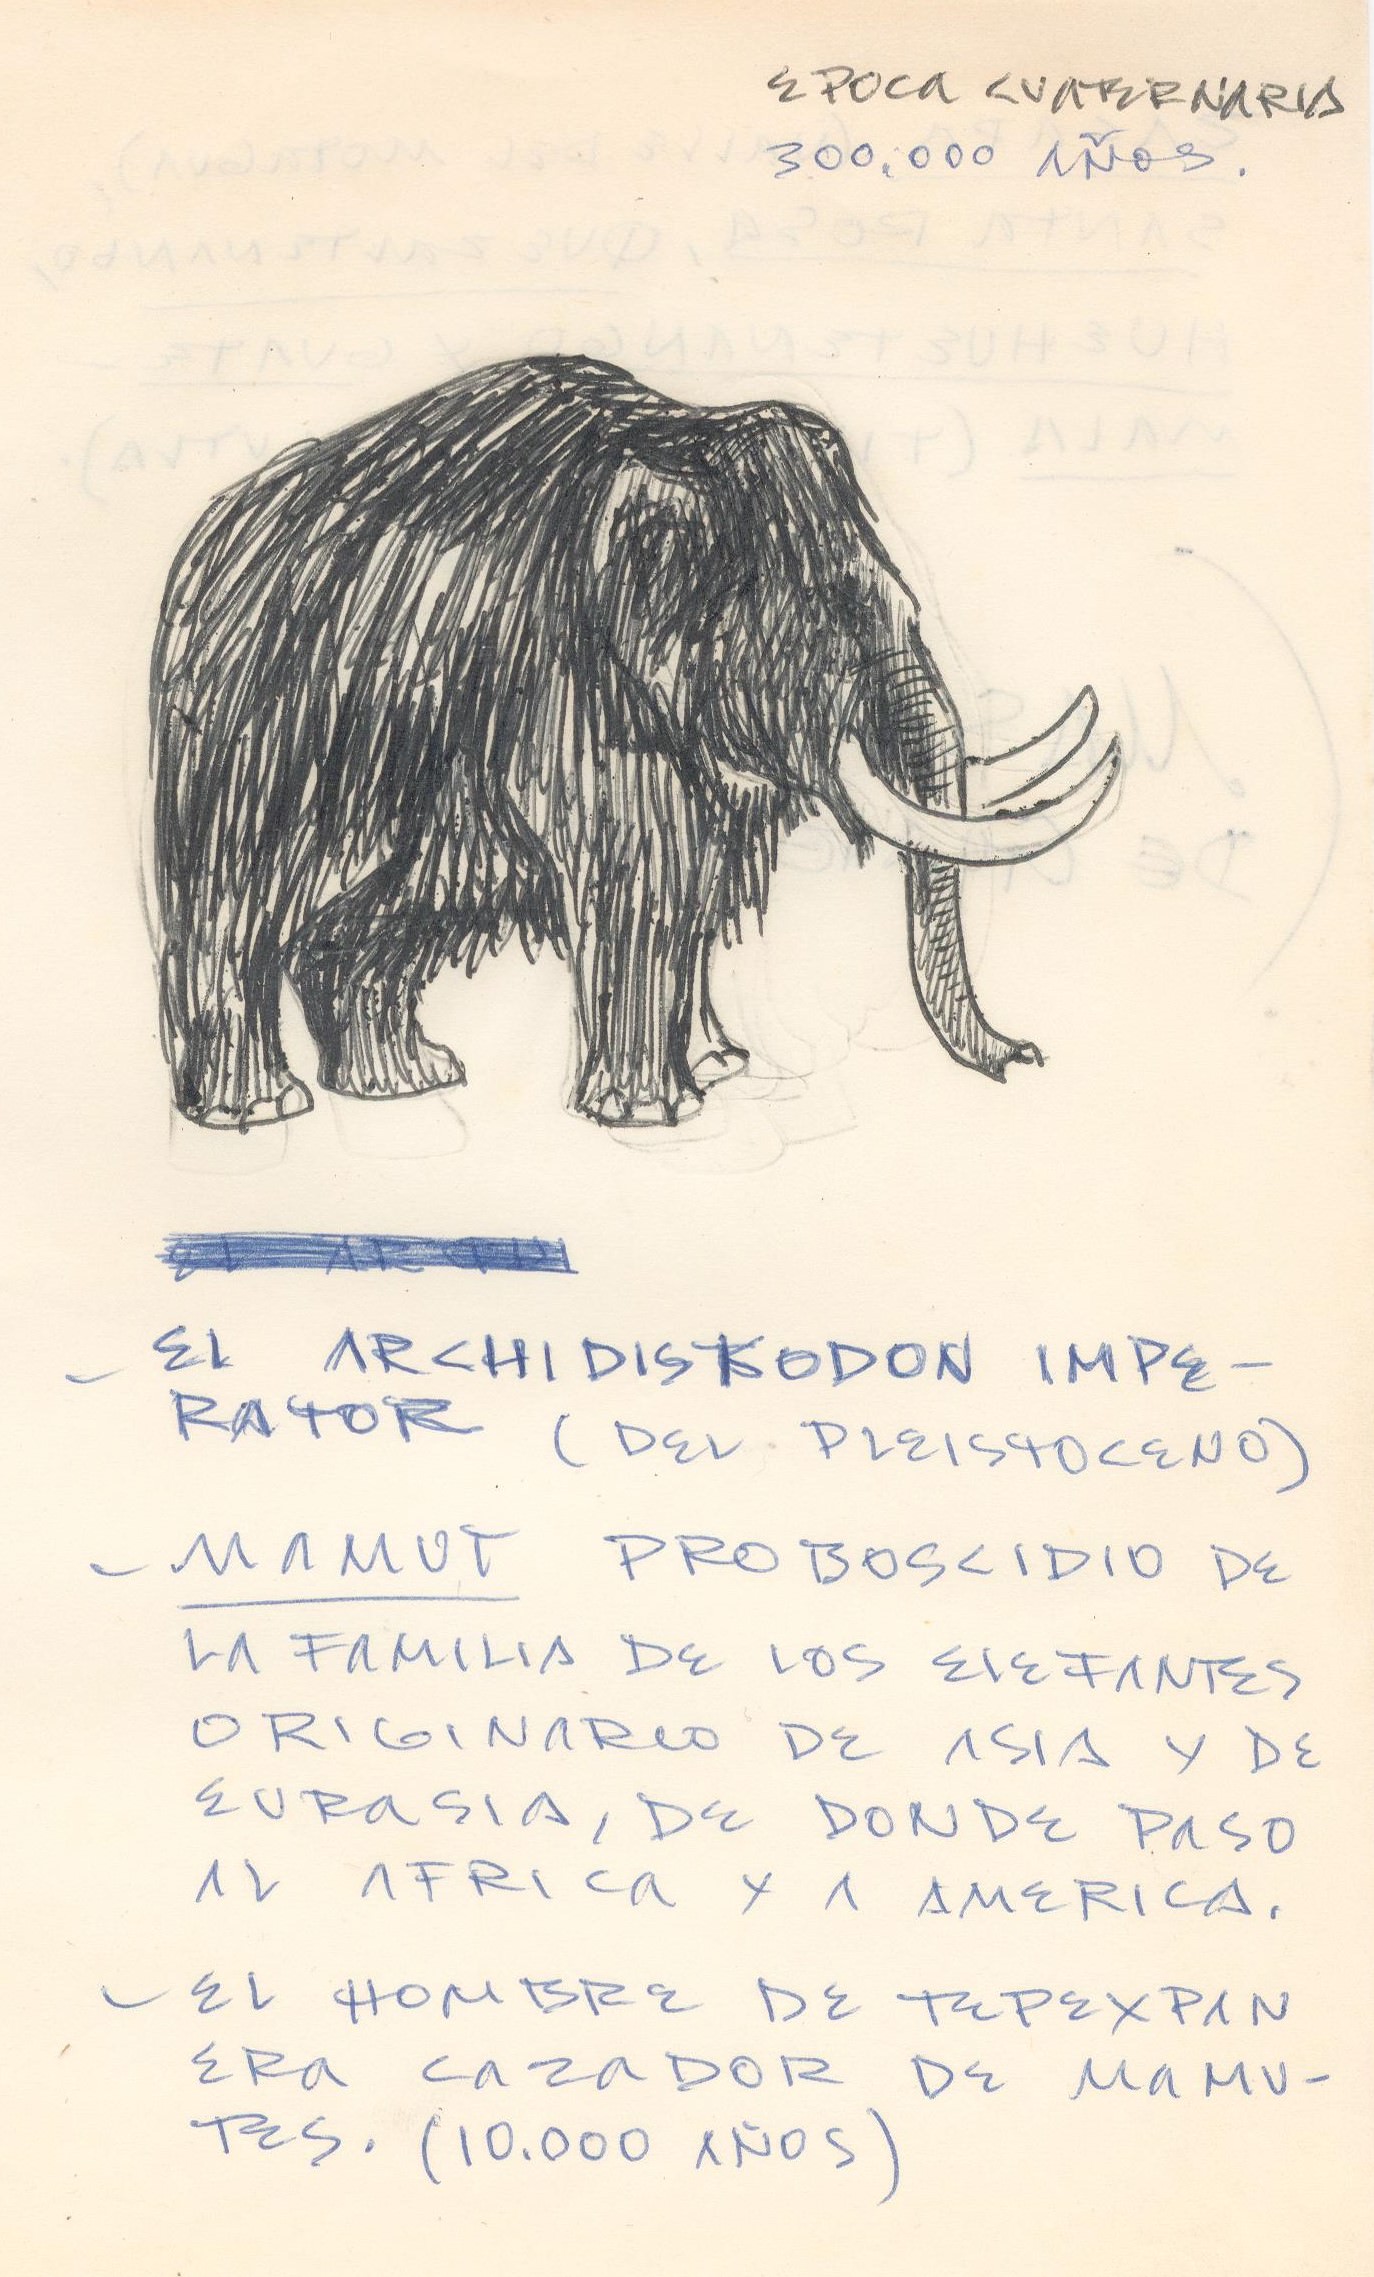 EPOCA CUATERNARIA
300.000 AÑOS.
EL ARCHIDISKODON IMPE-
RATOR (DEL PLEISTOCENO)
MAMUT PROBOSCIDIO DE
LA FAMILIA DE LOS ELEFANTES
ORIGINARIO DE ASIA Y DE
EURASIA, DE DONDE PASO
AL AFRICA Y A AMERICA.
- EL HOMBRE DE TEPEXPAN
ERA CAZADOR DE MAMU-
TES. (10.000 AÑOS)